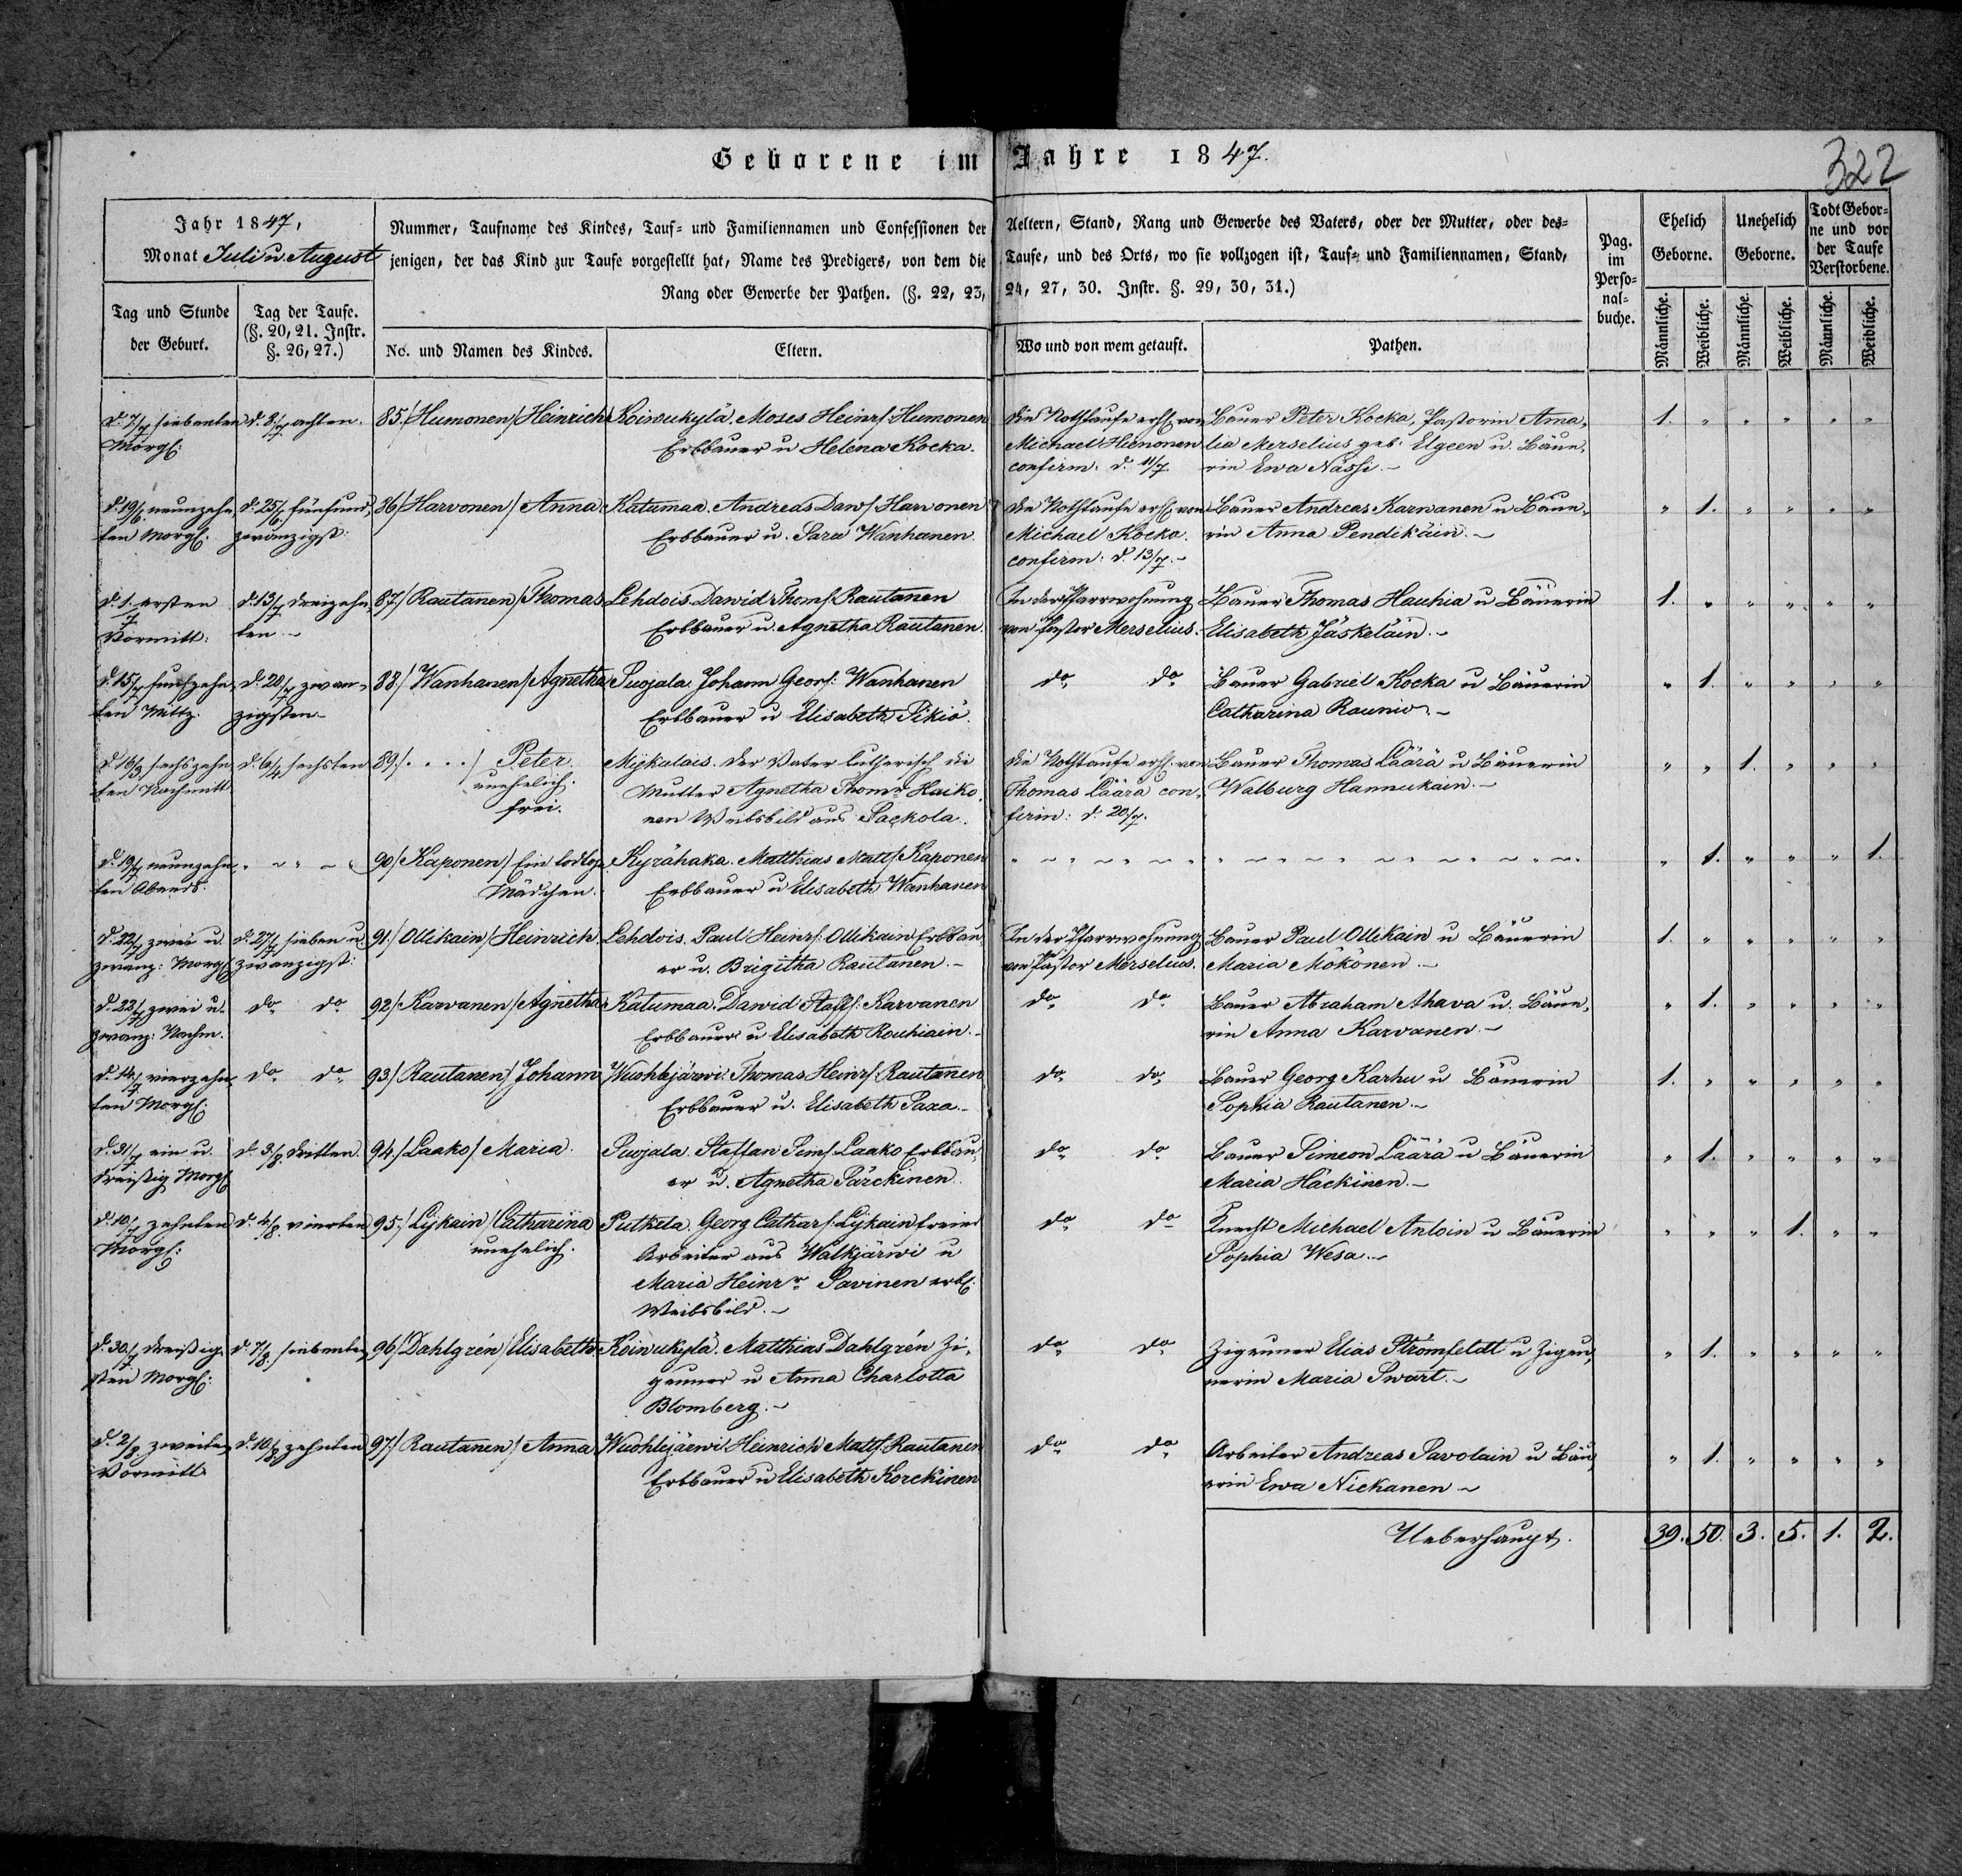 Geborene im Jahre 1847.
322
Jahr 1847,
Monat Juli u. August
Tag und Stunde
der Geburt.
Tag der Taufe.
(§. 20, 21. Instr.
§. 26, 27.)
Nummer, Taufname des Kindes, Tauf- und Familiennamen und Confessionen der Aeltern, Stand, Rang und Gewerbe des Vaters, oder der Mutter, oder des-
jenigen, der das Kind zur Taufe vorgestellt hat, Name des Predigers, von dem die Taufe, und des Orts, wo sie vollzogen ist, Tauf- und Familiennamen, Stand,
Rang oder Gewerbe der Pathen. (§. 22, 23, 24, 27, 30. Instr. §. 29, 30, 31.)
No. und Namen des Kindes.
Eltern.
Wo und von wem getauft.
Pathen.
Pag.
im
Perso-
nal-
buche.
Ehelich
Geborne.
Unehelich
Geborne.
Todt Gebor-
ne und vor
der Taufe
Verstorbene.
Männliche. Weibliche. Männliche. Weibliche. Männliche. Weibliche.
d. 7/7 siebenten
Morgs:
d. 8/7 achten.
85./ Humonen/ Heinrich
Koiwukylä. Moses Heinrs. Humonen
Erbbauer u Helena Kocka.
Die Nothtaufe erhs. von
Michael Hienonen
confirm: d. 11/7
Bauer Peter Kocka, Pastorin Ama-
lia Merselius geb. Elgeen u. Bäue-
rin Ewa Nässi.
1. " " " " "
d. 19/6. neunzehn-
ten Morgs.
d. 25/6. fünfund-
zwanzigst:
86/ Harvonen/ Anna
Katumaa. Andreas Daws. Harvonen
Erbbauer u. Sara Wanhanen
Die Nothtaufe erhs. von
Michael Kocka.
confirm: d. 13/7.
Bauer Andreas Karwanen u Bäue-
rin Anna Pendikäin.
" 1. " " " "
d. 1/7. ersten
Vormitt:
d. 13/7 dreizehn-
ten.
87/ Rautanen/ Thomas
Lehdois. Dawid Thoms. Rautanen
Erbbauer u. Agnetha Rautanen.
In der Pfarrwohnung
von Pastor Merselius.
Bauer Thomas Hauhia u Bäuerin
Elisabeth Jäskeläin.
1. " " " " "
d. 15/7 funfzehn-
ten Mittg.
d. 20/7 zwan-
zigsten.
88/ Wanhanen/ Agnetha
Suojala. Johann Geors: Wanhanen
Erbbauer u Elisabeth Pikiö.
do do
Bauer Gabriel Kocka u Bäuerin
Catharina Raunio.
" 1. " " " "
d. 16/3. sechszehn-
ten Nachmitt.
d. 6/4 sechsten
89./ . . . ./ Peter.
unehelich.
frei.
Mijkulais. Der Vater lutherisch die
Mutter Agnetha Thomr Haiko-
nen Weibsbild aus Sackola.
Die Nothtaufe erhs. von
Thomas Läärä con-
firm: d. 20/7.
Bauer Thomas Läärä u Bäuerin
Walburg Hannukain.
" " 1. " " "
d. 19/7 neunzehn-
ten Abends.
90/ Kaponen/ Ein todtgs.
Mädchen.
Kyrähaka. Matthias Matts. Kaponen
Erbbauer u Elisabeth Wanhanen
" 1. " " " 1.
d. 22/7 zwei u.
zwanz: Morgs.
d. 27/7 sieben u.
zwanzigst:
91./ Ollikain/ Heinrich.
Lehdois. Paul Heinrs: Ollikain Erbbau-
er u. Brigitha Rautanen.
In der Pfarrwohnung
von Pastor Merselius.
Bauer Paul Ollikain u Bäuerin
Maria Mökönen.
1. " " " " "
d. 22/7 zwei u.
zwanz: Nachm.
do do
92/ Karvanen/ Agnetha
Katumaa. Dawid Staffs: Karvanen
Erbbauer u Elisabeth Rouhiain.
do do
Bauer Abraham Ahava u. Bäue-
rin Anna Karvanen.
" 1. " " " "
d. 14/7 vierzehn-
ten Morgs:
do do
93/ Rautanen/ Johann
Wuohlejärwi. Thomas Heinrs. Rautanen
Erbbauer u. Elisabeth Paxa.
do do
Bauer Georg Karhu u Bäuerin
Sophia Rautanen.
1. " " " " "
d. 31/7 ein u.
dreißig Morgs
d. 3/8. dritten.
94./ Laako/ Maria.
Suojala. Staffan Sims. Laako Erbbau-
er u. Agnetha Pärckinen.
do do
Bauer Simeon Läärä u Bäuerin
Maria Häckinen.
" 1. " " " "
d. 10/7 zehnten
Morgs:
d. 4/8. vierten
95./ Lijkain/ Catharina
unehelich.
Putkela. Georg Cathars. Lijkain freier
Arbeiter aus Walkjärwi u
Maria Heinrr Savinen erbs.
Weibsbild.
do do
Knecht Michael Antoin u Bäuerin
Sophia Wesa.
" " " 1. " "
d. 30/7 dreißig-
sten Morgs:
d. 7/8. siebenten
96/ Dahlgrén/ Elisabeth
Koiwukylä. Matthias Dahlgrén Zi-
geuner u Anna Charlotta
Blomberg.
do do
Zigeuner Elias Strömfeldt u Zigeu-
nerin Maria Swart.
" 1. " " " "
d. 2/8. zweiten
Vormitt.
d. 10/8. zehnten
97/ Rautanen/ Anna
Wuohlejärwi. Heinrich Matts. Rautanen
Erbbauer u Elisabeth Korckinen
do do
Arbeiter Andreas Pavolain u Bäu-
erin Ewa Nickanen
" 1. " " " "
Ueberhaupt. 39. 50. 3. 5. 1. 2.